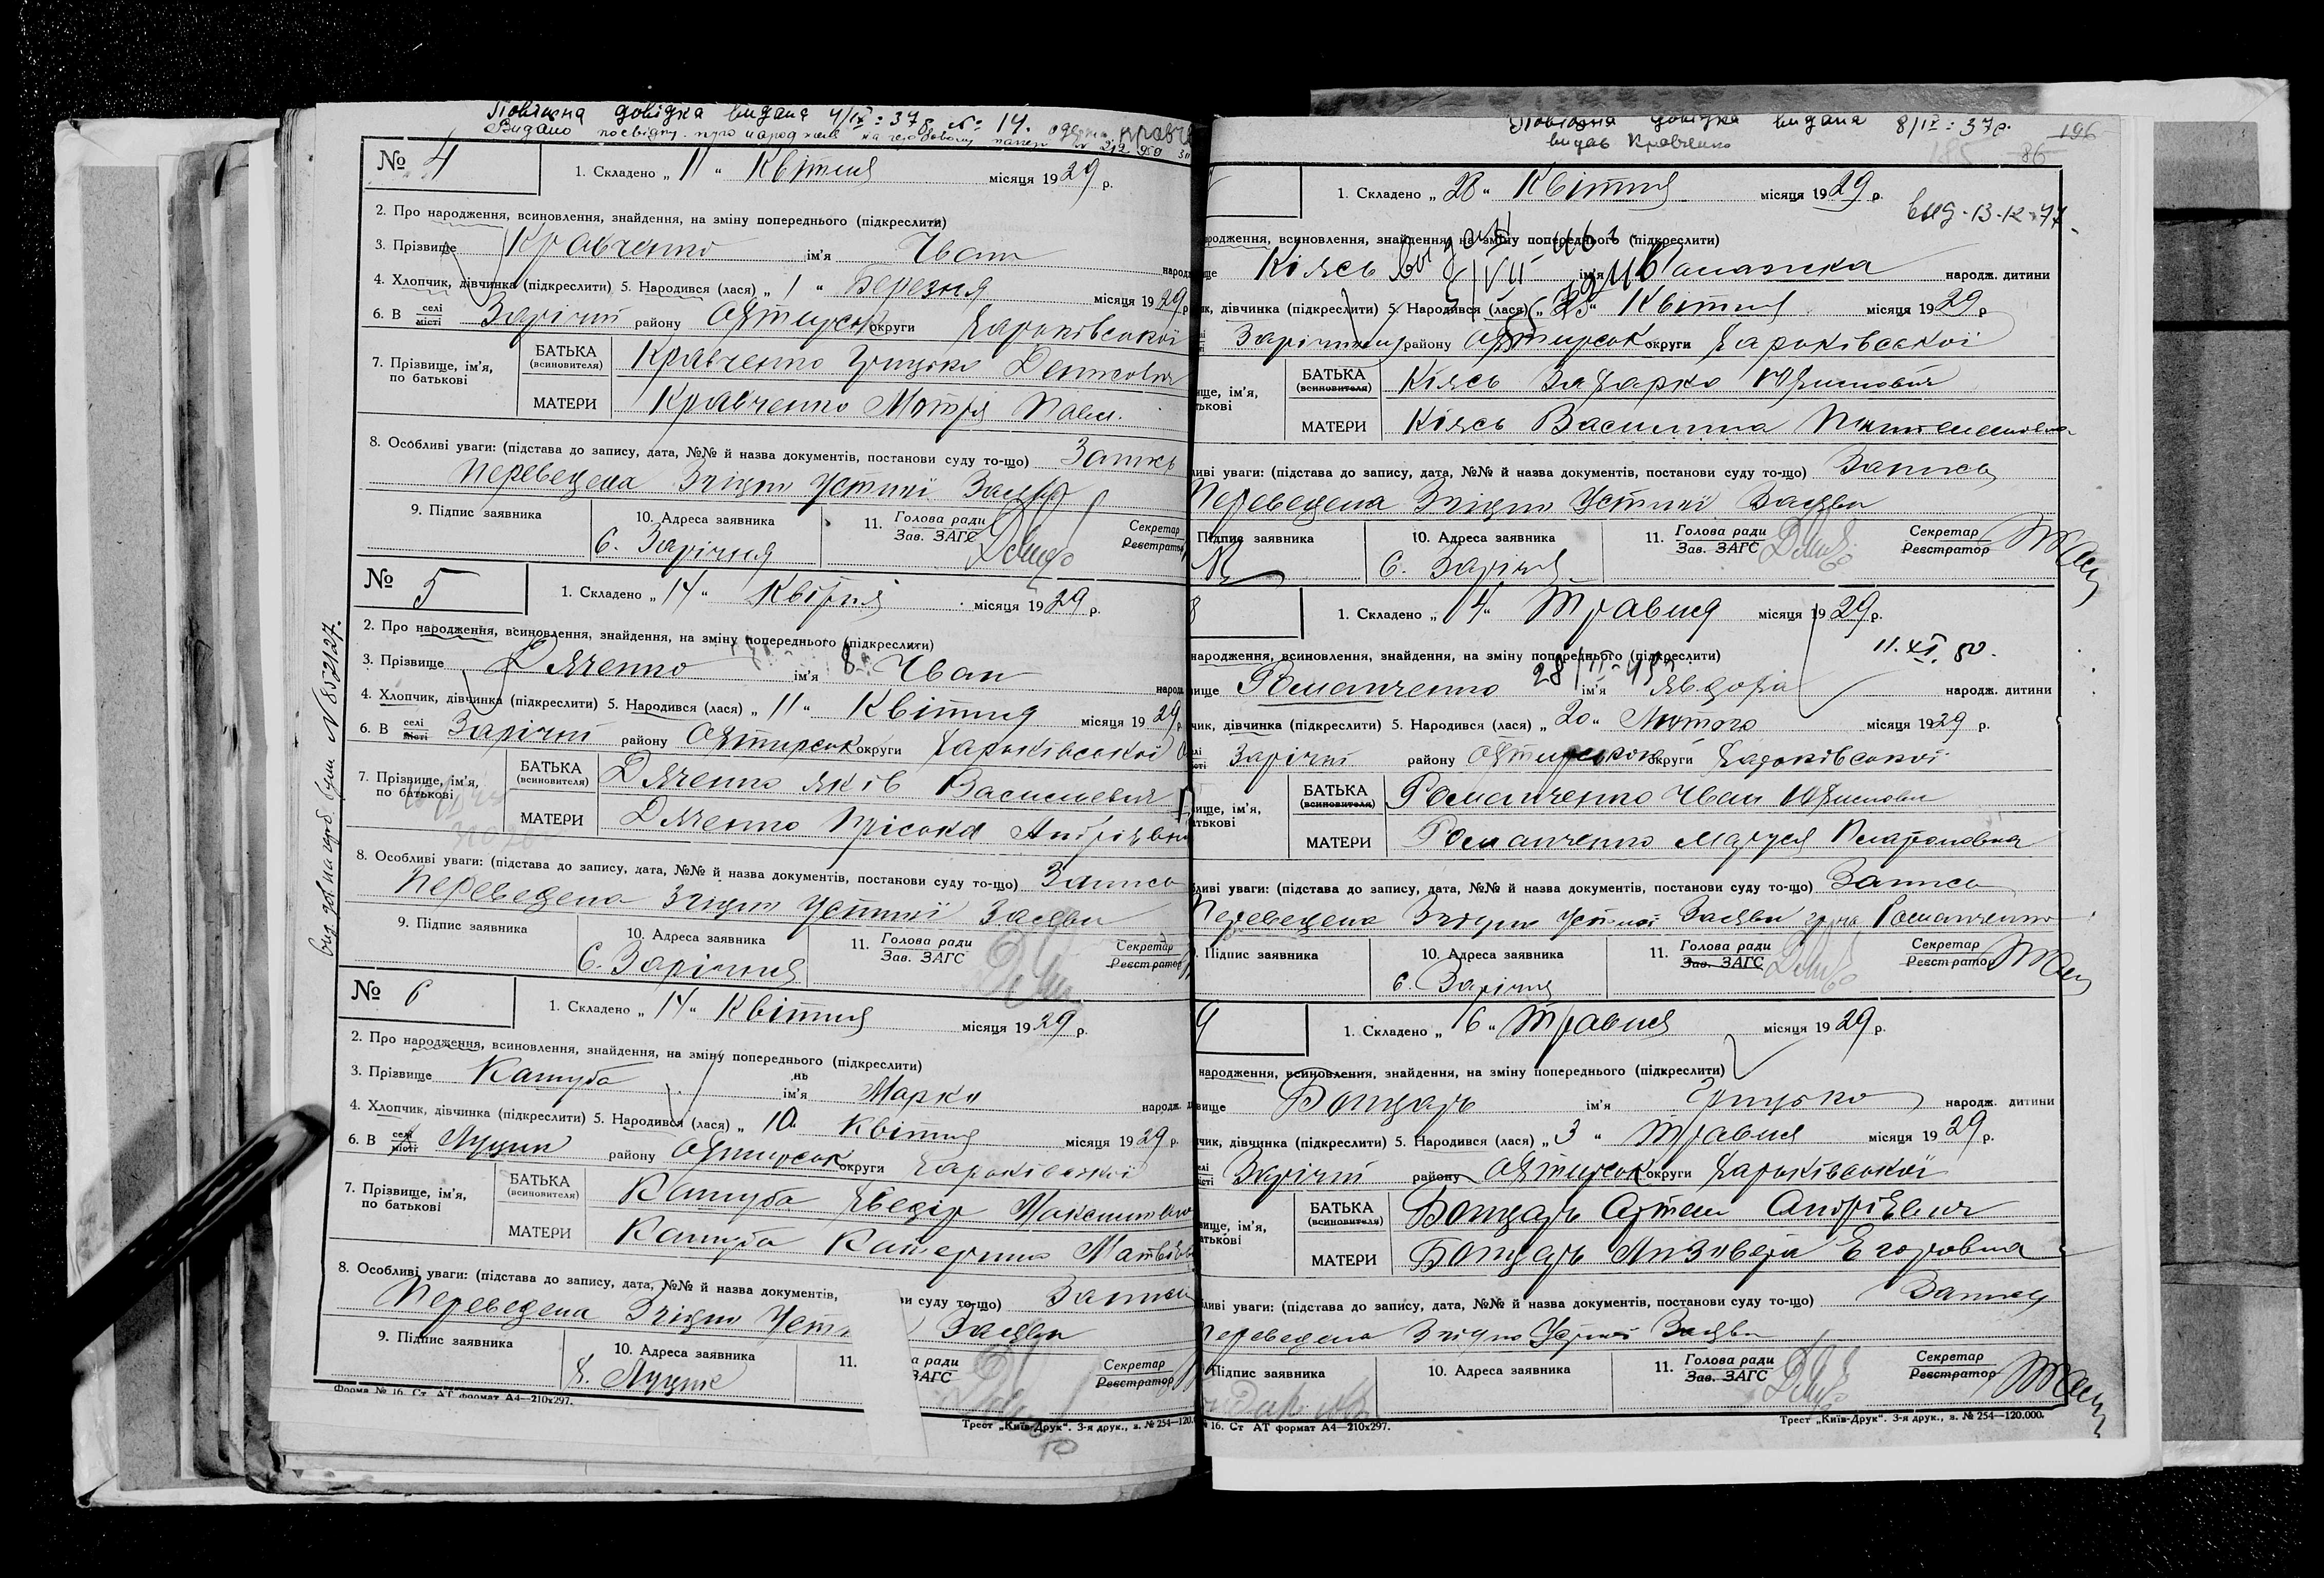 Повторна довідка видана 4/IX-37р № 14.
Видано
№ 4
1. Складено „ 11 “ Квітня місяця 1929 р.
2. Про народження, всиновлення, знайдення, на зміну попереднього (підкреслити)
3. Прізвище Кравченко ім'я Іван народ
4. Хлопчик, дівчинка (підкреслити) 5. Народився (лася) „ 1 “ Березня місяця 1929 р
6. В селі місті Зарічні району Охтирськ округи Харьківської
7. Прізвище, ім'я, по батькові
БАТЬКА (всиновителя) Кравченко Грицько Денисович
МАТЕРИ Кравченко Мотря Павл.
8. Особливі уваги: (підстава до запису, дата, №№ й назва документів, постанови суду то-що) Запись
переведена Згідно Устної Заяви
9. Підпис заявника 10. Адреса заявника 11. Голова ради Зав. ЗАГС Секретар Реєстратор
С. Зарічня
№ 5
1. Складено „ 14 “ Квітня місяця 1929 р.
2. Про народження, всиновлення, знайдення, на зміну попереднього (підкреслити)
3. Прізвище Дяченко ім'я Іван народ
4. Хлопчик, дівчинка (підкреслити) 5. Народився (лася) „ 11 “ Квітня місяця 1929 р
6. В селі місті Зарічні району Охтирськ округи Харьківської
7. Прізвище, ім'я, по батькові
БАТЬКА (всиновителя) Дяченко Яків Васильевич
МАТЕРИ Дяченко Пріська Андріївн
8. Особливі уваги: (підстава до запису, дата, №№ й назва документів, постанови суду то-що) Запись
переведена Згідно Устної Заяви
9. Підпис заявника 10. Адреса заявника 11. Голова ради Зав. ЗАГС Секретар Реєстратор
С. Зарічня
№ 6
1. Складено „ 14 “ Квітня місяця 1929 р.
2. Про народження, всиновлення, знайдення, на зміну попереднього (підкреслити)
3. Прізвище Кашуба ім'я Марко народж. д
4. Хлопчик, дівчинка (підкреслити) 5. Народився (лася) „ 10 “ Квітня місяця 1929 р.
6. В селі місті району Охтирськ округи Харьківської
7. Прізвище, ім'я, по батькові
БАТЬКА (всиновителя) Кашуба Хведір
МАТЕРИ Кашуба Катерина Матвіївн
8. Особливі уваги: (підстава до запису, дата, №№ й назва документів, ви суду то-що) Запись
переведена Згідно Устн Заяви
9. Підпис заявника 10. Адреса заявника 11. а ради ЗАГС Секретар Реєстратор
Форма № 16. Ст. АТ формат А4—210х297.
Трест „Київ-Друк“. 3-я друк., з. № 254—120.0
Повторна довідка видана 8/IX-37р. 196
видав Кравченко 86
1. Складено „ 28 “ Квітня місяця 1929 р.
родження, всиновлення, знайдення, на зміну попереднього (підкреслити)
ще Кіясь ім'я народж. дитини
ик, дівчинка (підкреслити) 5. Народився (лася) „ 25 “ Квітня місяця 1929 р
району Охтирськ округи Харьківської
ище, ім'я, тькові
БАТЬКА (всиновителя) Кіясь Захарко Юхимович
МАТЕРИ Кіясь Василина
иві уваги: (підстава до запису, дата, №№ й назва документів, постанови суду то-що) Запись
переведена Згідно Устної Заяви
Підпис заявника 10. Адреса заявника 11. Голова ради Зав. ЗАГС Секретар Реєстратор
С. Зарічня
8
1. Складено „ 4 “ Травня місяця 1929 р.
11.XI.80.
народження, всиновлення, знайдення, на зміну попереднього (підкреслити)
вище Романченко ім'я Явдоха народж. дитини
чик, дівчинка (підкреслити) 5. Народився (лася) „ 20 “ Лютого місяця 1929 р.
Зарічні району Охтирської округи Харьківської
вище, ім'я, атькові
БАТЬКА (всиновителя) Романченко Іван Юхимови
МАТЕРИ Романченко Маруся Платоновна
ливі уваги: (підстава до запису, дата, №№ й назва документів, постанови суду то-що) Запись
переведена Згідно Устної Заяви гр-на Романченко
Підпис заявника 10. Адреса заявника 11. Голова ради Зав. ЗАГС Секретар Реєстратор
С. Зарічня
9
1. Складено „ 6 “ Травня місяця 1929 р.
народження, всиновлення, знайдення, на зміну попереднього (підкреслити)
вище Бондарь ім'я Грицько народж. дитини
чик, дівчинка (підкреслити) 5. Народився (лася) „ 3 “ Травня місяця 1929 р.
Зарічні району Охтирськ округи Харьківської
вище, ім'я, атькові
БАТЬКА (всиновителя) Бондарь Артем Андріевич
МАТЕРИ Бондарь Лизавета Егоровна
ливі уваги: (підстава до запису, дата, №№ й назва документів, постанови суду то-що) Запись
переведена Згідно Устної Заяви
Підпис заявника 10. Адреса заявника 11. Голова ради Зав. ЗАГС Секретар Реєстратор
№ 16. Ст АТ формат А4—210х297.
Трест „Київ-Друк“. 3-я друк., з. № 254—120.000.